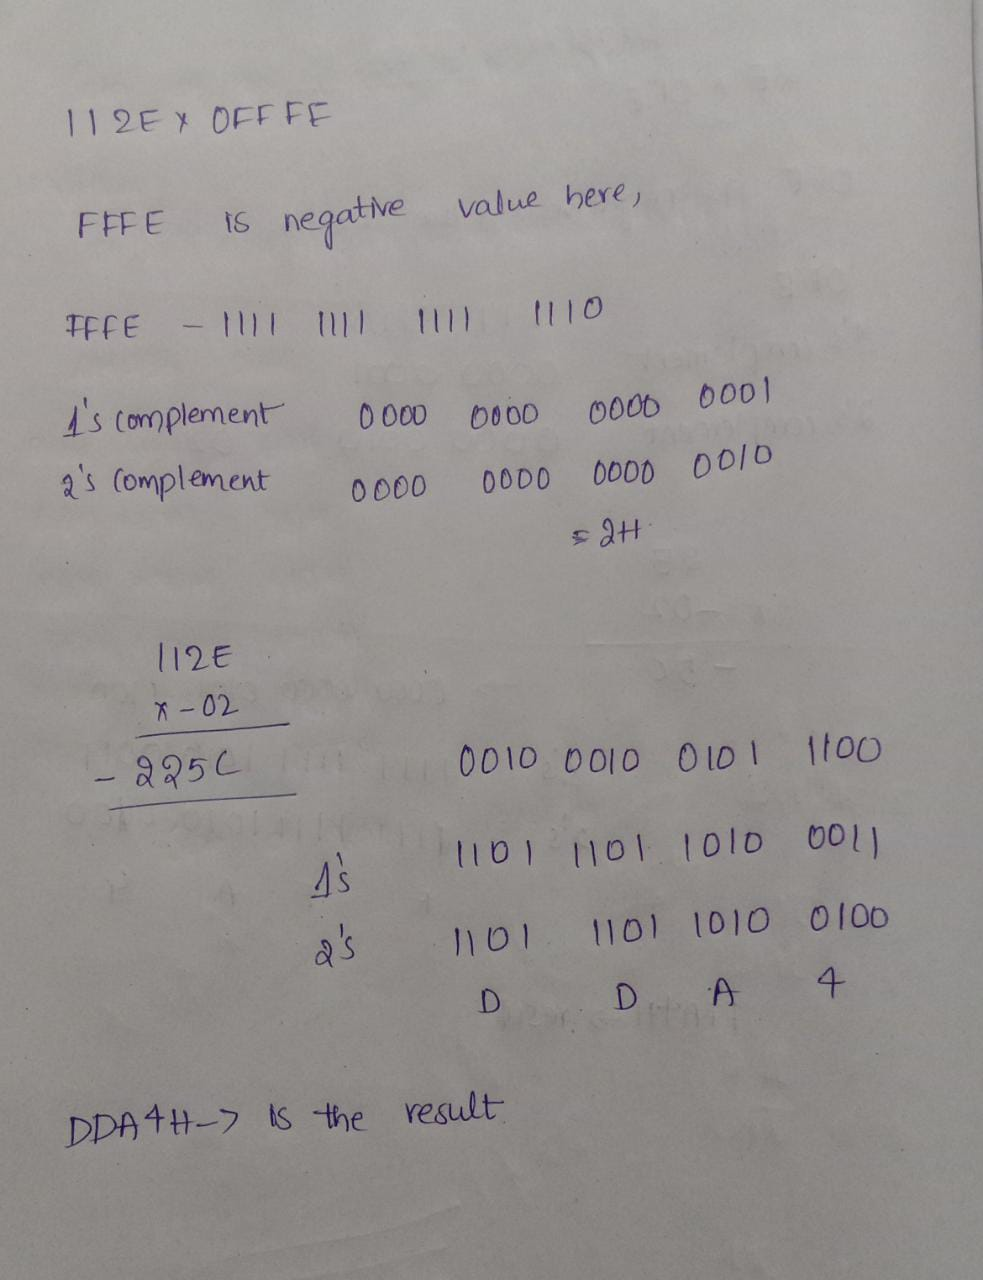 112E x OFFFE
FFFE is negative value here,
FFFE - 1111 1111 1111 1110
1's complement 0000 0000 0000 0001
2's complement 0000 0000 0000 0010
= 2H
112E
x - 02
- 225C 0010 0010 0101 1100
1's 1101 1101 1010 0011
2's 1101 1101 1010 0100
D D A 4
DDA4H-> is the result